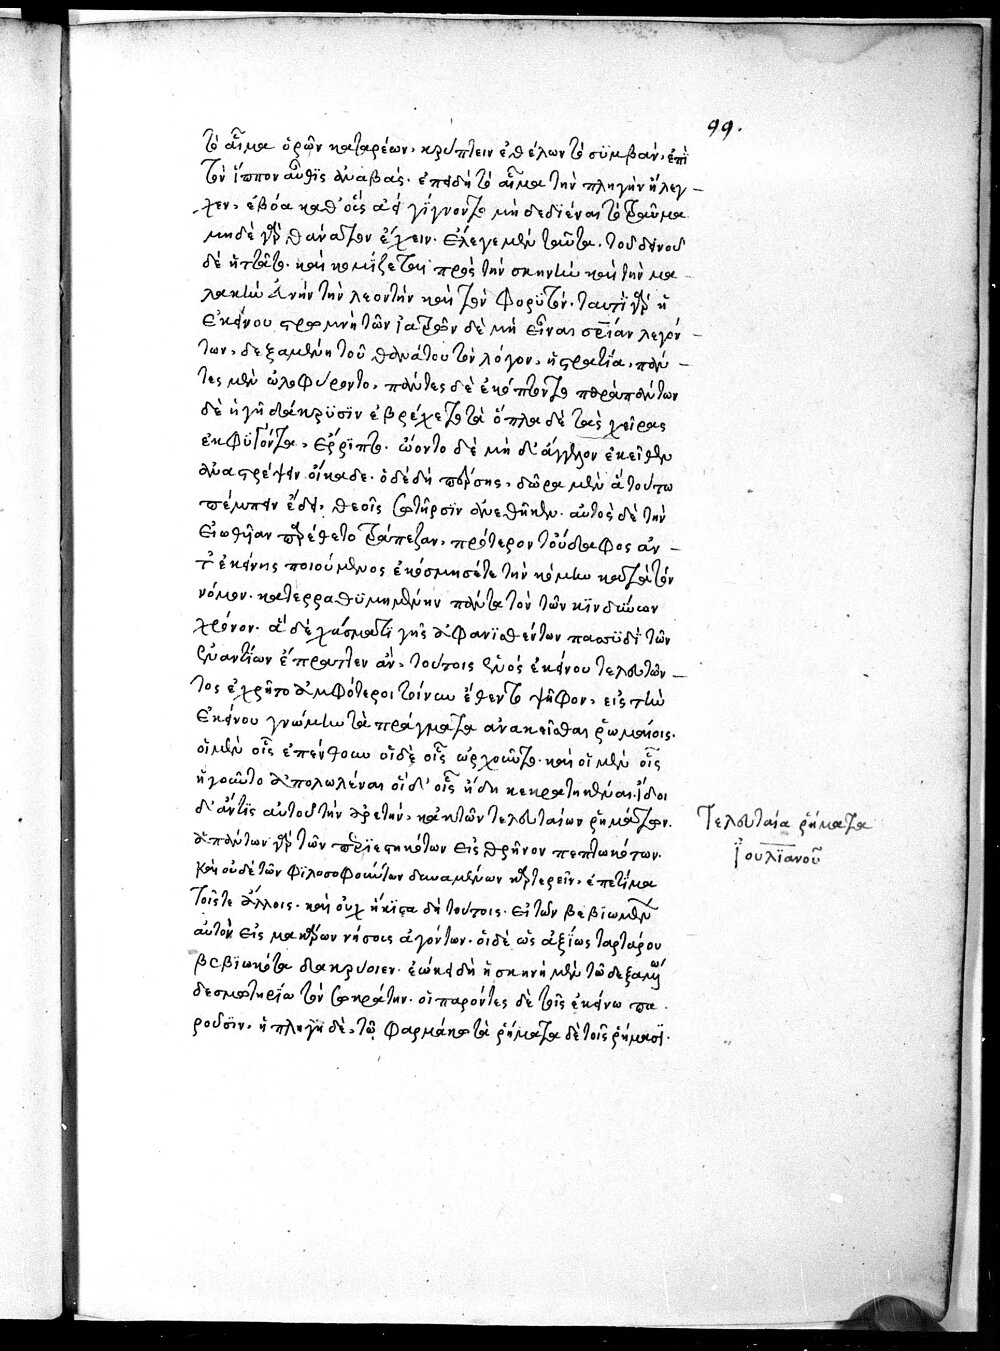 99.
τὸ αἷμα ὁρῶν καταρέων, κρύπτειν ἐθέλων τὸ συμβάν, ἐπὶ
τὸν ἵππον αὖθις ἀναβάς. ἐπειδὴ τὸ αἷμα τὴν πληγὴν ἤλεγ-
χεν, ἐβόα καθ' οἷς ἀεὶ γίγνοντο μὴ δεδιέναι τὸ τραῦμα
μηδὲ γὰρ θάνατον ἔχειν. ἔλεγε μὲν ταῦτα. τοῦ δεινοῦ
δὲ ἡττᾶτο. καὶ κομίζεται πρὸς τὴν σκηνὴν καὶ τὴν μα-
λακὴν εὐνὴν τὴν λεοντὴν καὶ τὸν φορυτὸν. ταυτὶ γὰρ ἡ
ἐκείνου στρωμνὴ τῶν ἰατρῶν δὲ μὴ εἶναι σρίαν λεγόν-
των, δεξαμένη τοῦ θανάτου τὸν λόγον, ἡ στρατιά, πάν-
τες μὲν ὠλοφύροντο, πάντες δὲ ἐκόπτοντο παρὰ πάντων
δὲ ἡ γῆ δάκρυσιν ἐβρέχετο τὰ ὅπλα δὲ τὰς χεῖρας
ἐκφυγόντα, ἔρριπτο. ᾤοντο δὲ μὴ δ' ἄγγελον ἐκεῖθεν
ἀναστρέψειν οἴκαδε. ὁ δὲ δὴ πέρσης, δῶρα μὲν ἃ τούτω
πέμπειν ἔδει, θεοῖς σωτῆρσιν ἀνεθῆκεν. αὐτὸς δὲ τὴν
εἰωθῆαν παρέθετο τράπεζαν, πρότερον τοὔδαφος ἀν-
τ' ἐκείνης ποιούμενος ἐκόσμησέτε τὴν κόμην κατὰ τὸν
νόμον. κατερραθυμημένην πάντα τὸν τῶν κινδύνων
χρόνον. ἃ δὲ χάσματι γῆς ἀφανισθέντων πασσυδὶ τῶν
ἐναντίων ἔπραττεν ἄν, τούτοις ἑνὸς ἐκείνου τελευτῶν-
τος ἐχρῆτο ἀμφότεροι τοίνυν ἔθεντο ψῆφον, εἰς τὴν
ἐκείνου γνώμην τὰ πράγματα ἀνακεῖσθαι ῥωμαίοις.
οἱ μὲν οἷς ἐπένθουν οἱ δὲ οἷς ὠρχοῦντο. καὶ οἱ μὲν οἷς
ἡγοῦντο ἀπολωλέναι οἱ δ' οἷς ἤδη κεκρατηκέναι. ἴδοι
δ' ἄν τις αὐτοῦ τὴν ἀρετὴν, κἀκ τῶν τελευταίων ῥημάτων.
ἁπάντων γὰρ τῶν περιεστηκότων εἰς θρῆνον πεπτωκότων.
καὶ οὐδὲ τῶν φιλοσοφούντων δυναμένων καρτερεῖν, ἐπετίμα
τοῖς τε ἄλλοις. καὶ οὐχ ἥκιστα δὴ τούτοις. εἰ τῶν βεβιωμένων
αὐτὸν εἰς μακάρων νήσους ἀγόντων. οἱ δὲ ὡς ἀξίως ταρτάρου
βεβιωκότα δακρύοιεν. ἐώκειδὴ ἡ σκηνὴ μὲν τῷ δεξαμένῳ
δεσμωτηρίῳ τὸν σωκράτην. οἱ παρόντες δὲ τοῖς ἐκείνω πα-
ροῦσιν, ἡ πληγὴ δὲ, τῷ φαρμάκω τὰ ῥήματα δὲ τοῖς ῥήμασι.
Τελευταῖα ῥήματα
Ἰουλιανοῦ